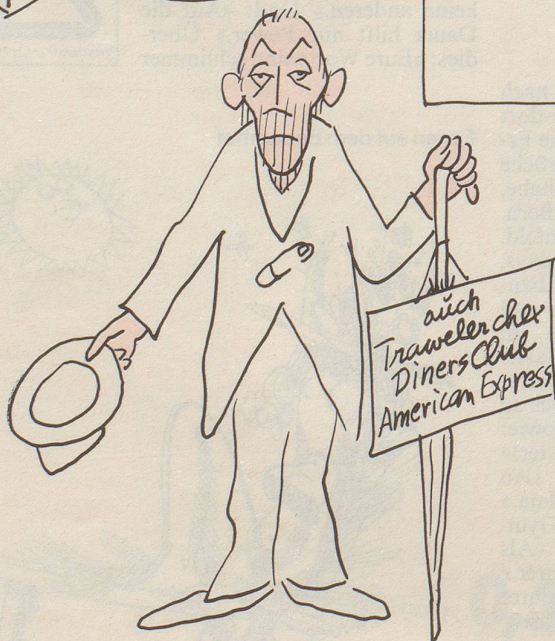 auch
Traweler chex
Diners Club
American Express